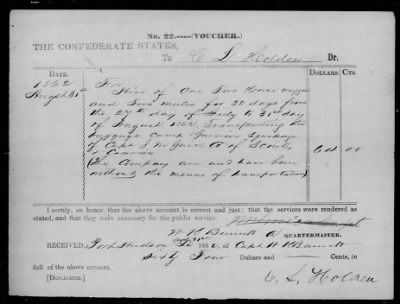 No. 22.----(VOUCHER.)
THE CONFEDERATE STATES,
To C L Holden Dr.
DATE. DOLLARS. CTS.
1862 For
August 31st Hire of One Two Horse waggon
and Two mules for 32 days from
the 27th day of July to 31st day
of August 1862, Transporting the
baggage Camp Garrison Equipage
of Capt J W of Scouts
(The Company are and have been 64 00
without the means of transportation)
I certify, on honor, that the above account is correct and just; that the services were rendered as
stated, and that they were necessary for the public service.
W R Barnett A QUARTERMASTER.
RECEIVED, Port Hudson La 1862, of Capt W R Barnett
Sixty Four Dollars and Cents, in
full of the above account.
(DUPLICATES.) C. L. Holden